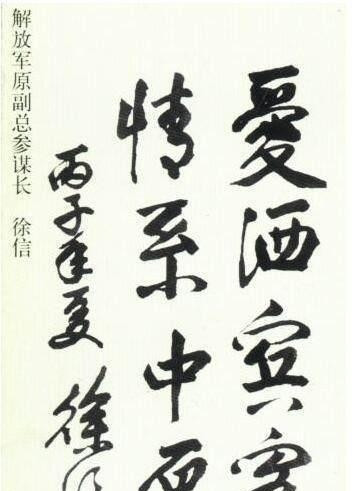 愛洒宾
情系中
丙子年夏 徐
解放军原副总参谋长 徐信